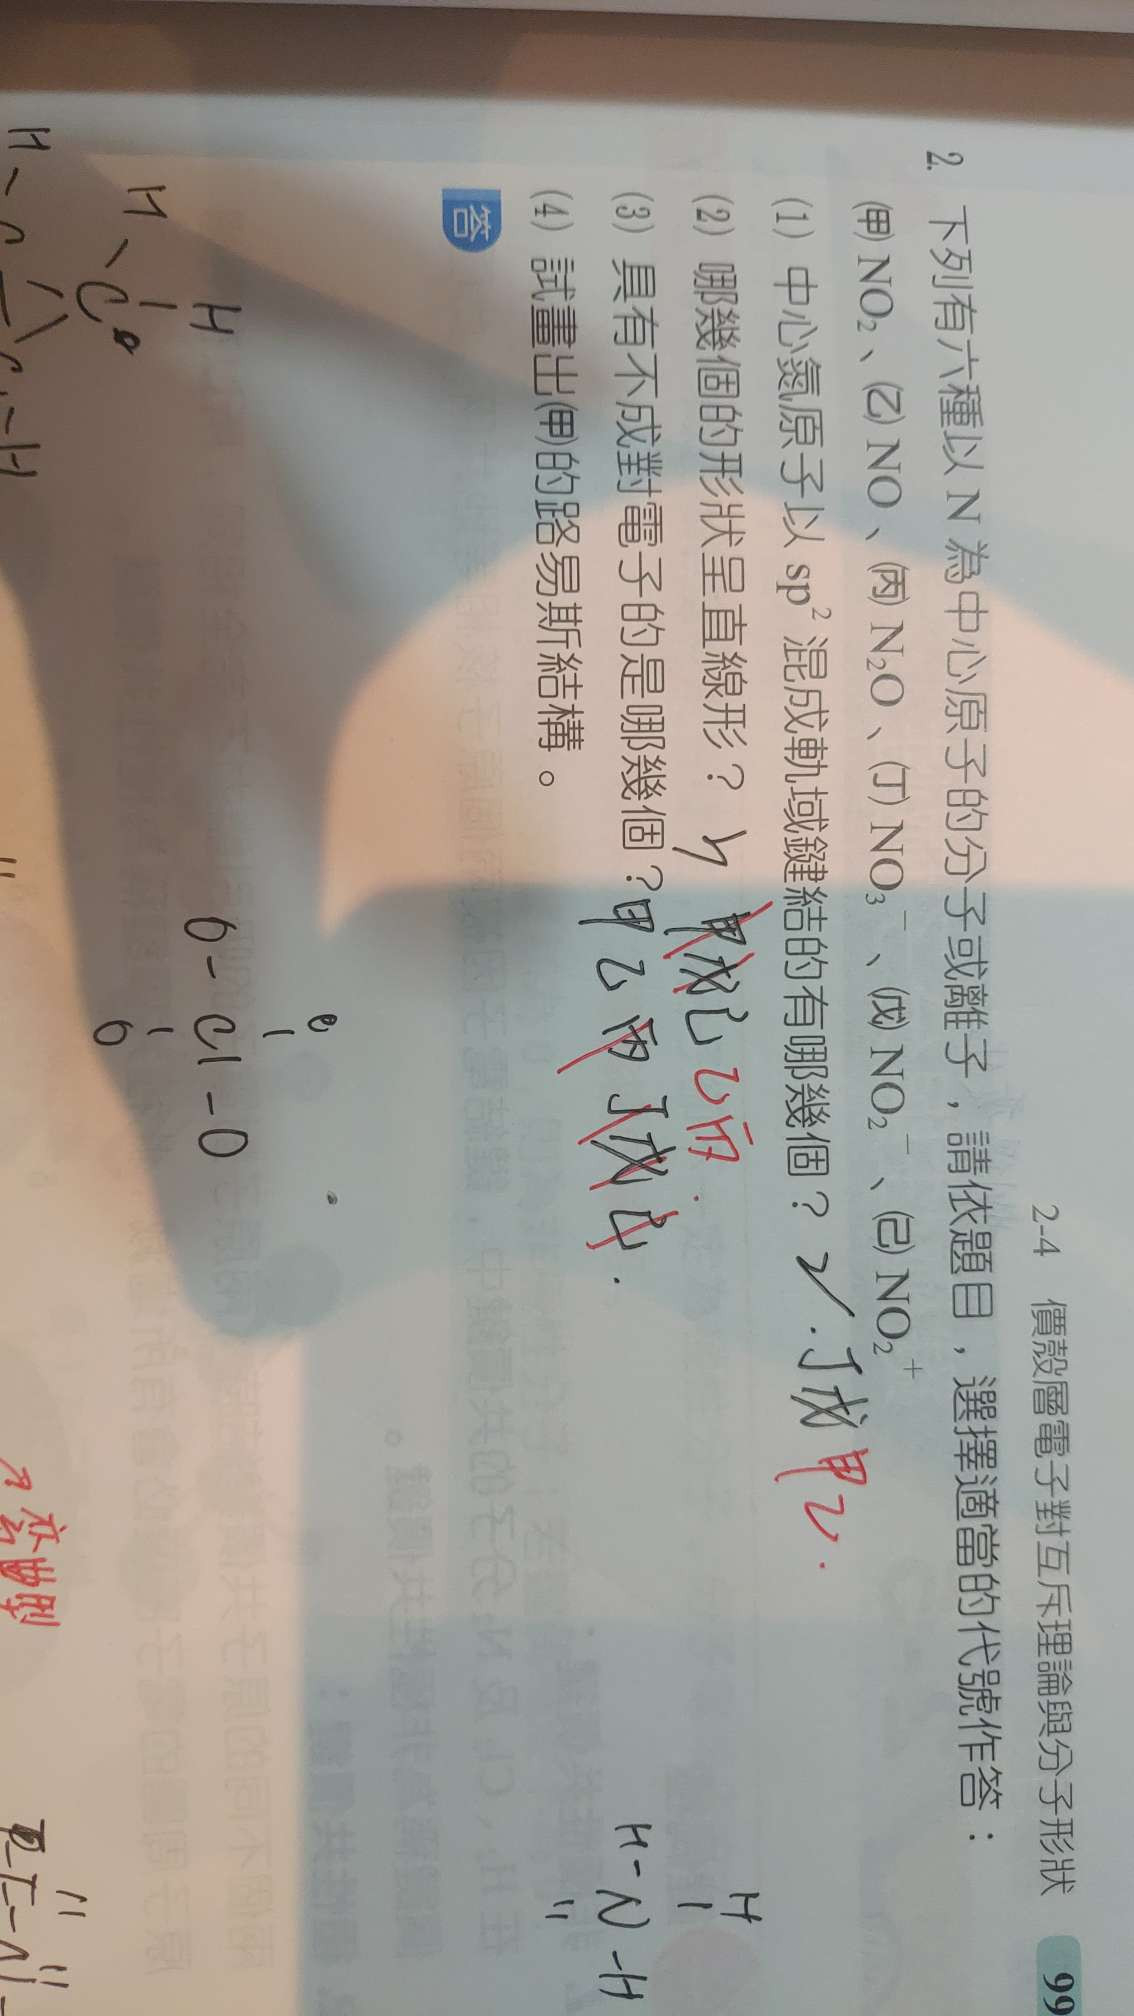 2-4 價殼層電子對互斥理論與分子形狀 99
2. 下列有六種以 N 為中心原子的分子或離子，請依題目，選擇適當的代號作答：
(甲) NO₂、(乙) NO、(丙) N₂O、(丁) NO₃⁻、(戊) NO₂⁻、(己) NO₂⁺
(1) 中心氮原子以 sp² 混成軌域鍵結的有哪幾個？ 丁戊甲乙.
(2) 哪幾個的形狀呈直線形？ 甲戊己乙丙.
(3) 具有不成對電子的是哪幾個？甲乙丙丁戊己.
(4) 試畫出(甲)的路易斯結構。
答
H
H-N-H
H
H C
O-Cl-O
O
H C C H